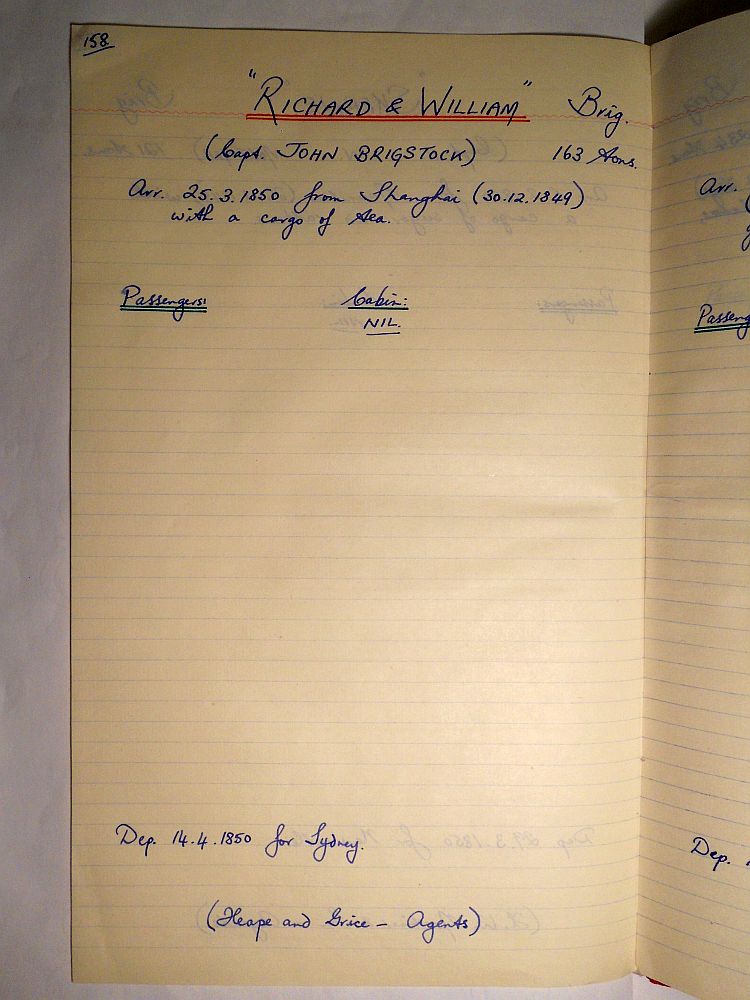 158
"RICHARD & WILLIAM" Brig.
(Capt. JOHN BRIGSTOCK) 163 tons.
Arr. 25.3.1850 from Shanghai (30.12.1849)
with a cargo of tea.
Passengers: Cabin:
NIL.
Dep. 14.4.1850 for Sydney.
(Heape and Grice - Agents)
Arr.
Dep.